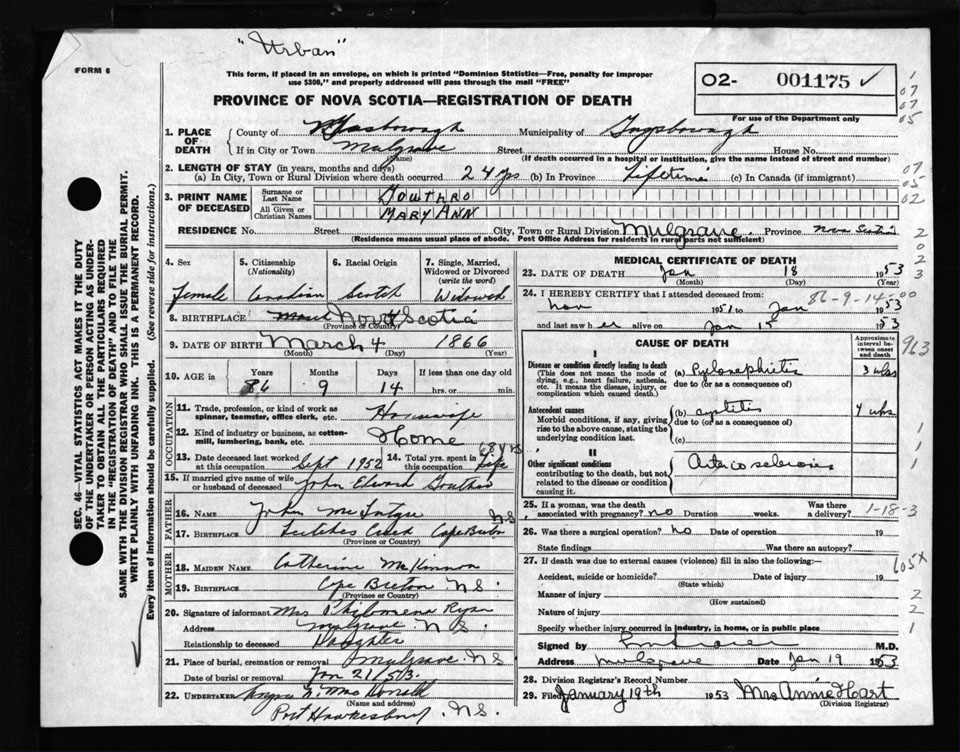 "Urban"
FORM 6
This form, if placed in an envelope, on which is printed "Dominion Statistics—Free, penalty for improper
use $300," and properly addressed will pass through the mail "FREE"
PROVINCE OF NOVA SCOTIA—REGISTRATION OF DEATH
O2- 001175 ✓
For use of the Department only
1. PLACE OF DEATH
County of
Municipality of Guysborough
If in City or Town Mulgrave Street House No.
(Name) (If death occurred in a hospital or institution, give the name instead of street and number)
2. LENGTH OF STAY (in years, months and days)
(a) In City, Town or Rural Division where death occurred 24 yrs (b) In Province Lifetime (c) In Canada (if immigrant)
3. PRINT NAME OF DECEASED
Surname or Last Name GOUTHRO
All Given or Christian Names MARY ANN
RESIDENCE No. Street City, Town or Rural Division Mulgrave. Province Nova Scotia
(Residence means usual place of abode. Post Office Address for residents in rural parts not sufficient)
4. Sex
female
5. Citizenship
(Nationality)
Canadian
6. Racial Origin
Scotch
7. Single, Married,
Widowed or Divorced
(write the word)
Widowed
8. BIRTHPLACE Nova Scotia
(Province or Country)
9. DATE OF BIRTH March 4 1866
(Month) (Day) (Year)
10. AGE in Years Months Days If less than one day
86 9 14 hrs. or min.
OCCUPATION
11. Trade, profession, or kind of work as
spinner, teamster, office clerk, etc. Housewife
12. Kind of industry or business, as cotton-
mill, lumbering, bank, etc. Home
13. Date deceased last worked
at this occupation Sept 1952
14. Total yrs. spent in
this occupation 68 yrs Life
15. If married give name of wife
or husband of deceased John Edward Gouthro
FATHER
16. Name John McIntyre
17. Birthplace Cape Breton N S
(Province or Country)
MOTHER
18. MAIDEN NAME. Catherine McKinnon
19. BIRTHPLACE Cape Breton N S.
(Province or Country)
20. Signature of informant Mrs Philomena Ryan
Address Mulgrave N S
Relationship to deceased Daughter
21. Place of burial, cremation or removal Mulgrave. N S.
Date of burial or removal Jan 21/53.
22. UNDERTAKER Angus
(Name and address)
Port Hawkesbury. N.S.
MEDICAL CERTIFICATE OF DEATH
23. DATE OF DEATH Jan 18 1953
(Month) (Day)
24. I HEREBY CERTIFY that I attended deceased from: 86-9-14
Nov 1951 to Jan 1953
and last saw her alive on Jan 15 1953
CAUSE OF DEATH
Approximate
interval be-
tween onset
and death
I
Disease or condition directly leading to death
(This does not mean the mode of
dying, e.g., heart failure, asthenia,
etc. It means the disease, injury, or
complication which caused death.)
(a) Pyelonephritis 3 wks
due to (or as a consequence of)
Antecedent causes
Morbid conditions, if any, giving
rise to the above cause, stating the
underlying condition last.
(b) cystitis 4 wks
due to (or as a consequence of)
(c)
II
Other significant conditions
contributing to the death, but not
related to the disease or condition
causing it.
Arteriosclerosis
25. If a woman, was the death
associated with pregnancy? no Duration weeks. Was there
a delivery?
1-18-3
26. Was there a surgical operation? no Date of operation 19
State findings Was there an autopsy?
27. If death was due to external causes (violence) fill in also the following:
Accident, suicide or homicide? Date of injury 19
(State which)
Manner of injury
(How sustained)
Nature of injury
Specify whether injury occurred in industry, in home, or in public place
Signed by M.D.
Address Mulgrave Date Jan 19 1953
28. Division Registrar's Record Number
29. Filed January 19th 1953 Mrs Annie Hart
(Division Registrar)
SEC. 46—VITAL STATISTICS ACT MAKES IT THE DUTY
OF THE UNDERTAKER OR PERSON ACTING AS UNDER-
TAKER TO OBTAIN ALL THE PARTICULARS REQUIRED
IN THE "REGISTRATION OF DEATH" AND TO FILE THE
SAME WITH THE DIVISION REGISTRAR WHO SHALL ISSUE THE BURIAL PERMIT.
WRITE PLAINLY WITH UNFADING INK. THIS IS A PERMANENT RECORD.
Every item of information should be carefully supplied. (See reverse side for instructions.)